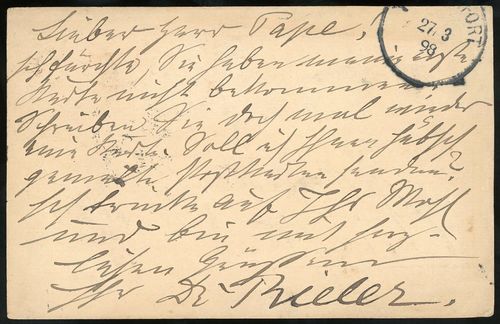 Lieber Herr Pape,
ich fürchte, Sie haben meine erste
Karte nicht bekommen.
Schreiben Sie doch mal wieder
eine Karte. Soll ich Ihnen hübsch
gemalte Postkarten senden?
Ich trinke auf Ihr Wohl
und bin mit herz-
lichen Grüssen
Ihr Dr
27. 3
98